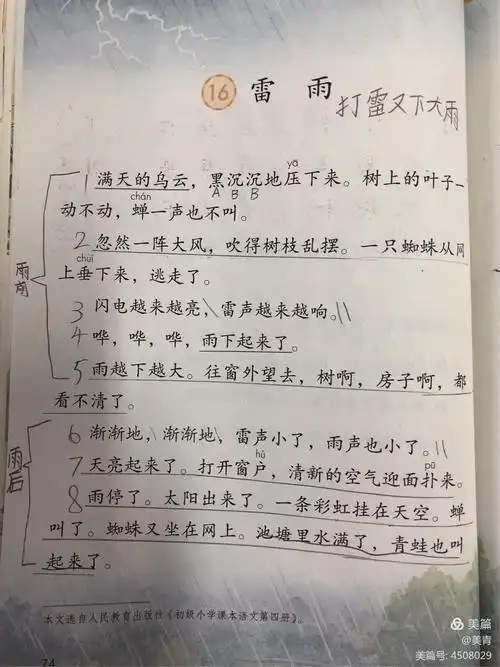 16 雷 雨 打雷又下大雨
yā
1 满天的乌云，黑沉沉地压下来。树上的叶子一
chán A B B
动不动，蝉一声也不叫。
2 忽然一阵大风，吹得树枝乱摆。一只蜘蛛从网
chuí
上垂下来，逃走了。
雨前
3 闪电越来越亮，雷声越来越响。
4 哗，哗，哗，雨下起来了。
5 雨越下越大。往窗外望去，树啊，房子啊，都
看不清了。
6 渐渐地，渐渐地，雷声小了，雨声也小了。
雨后
hù pū
7 天亮起来了。打开窗户，清新的空气迎面扑来。
8 雨停了。太阳出来了。一条彩虹挂在天空。蝉
叫了。蜘蛛又坐在网上。池塘里水满了，青蛙也叫
起来了。
本文选自人民教育出版社《初级小学课本语文第四册》。
74
美篇
@美青
美篇号: 4508029